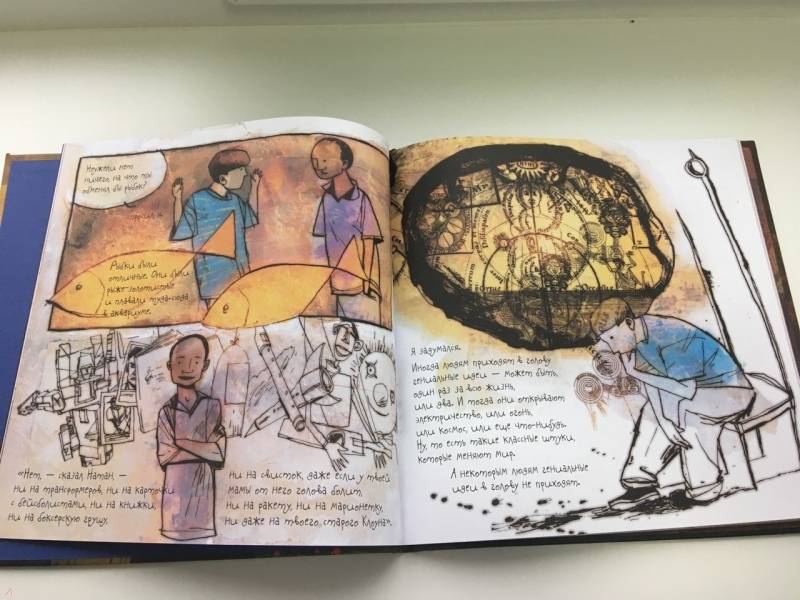 Неужели нет
ничего, на что ты
обменял бы рыбок?
спросил я.
Рыбки были
отличные. Они были
рыже-золотистые
и плавали туда-сюда
в аквариуме.
«Нет, — сказал Натан, —
ни на трансформеров, ни на карточки
с бейсболистами, ни на книжки,
ни на боксерскую грушу,
ни на свисток, даже если у твоей
мамы от него голова болит,
ни на ракету, ни на марионетку,
ни даже на твоего старого Клоуна».
Я задумался.
Иногда людям приходят в голову
гениальные идеи — может быть,
один раз за всю жизнь,
или два. И тогда они открывают
электричество, или огонь,
или космос, или еще что-нибудь.
Ну, то есть такие классные штуки,
которые меняют мир.
А некоторым людям гениальные
идеи в голову не приходят.